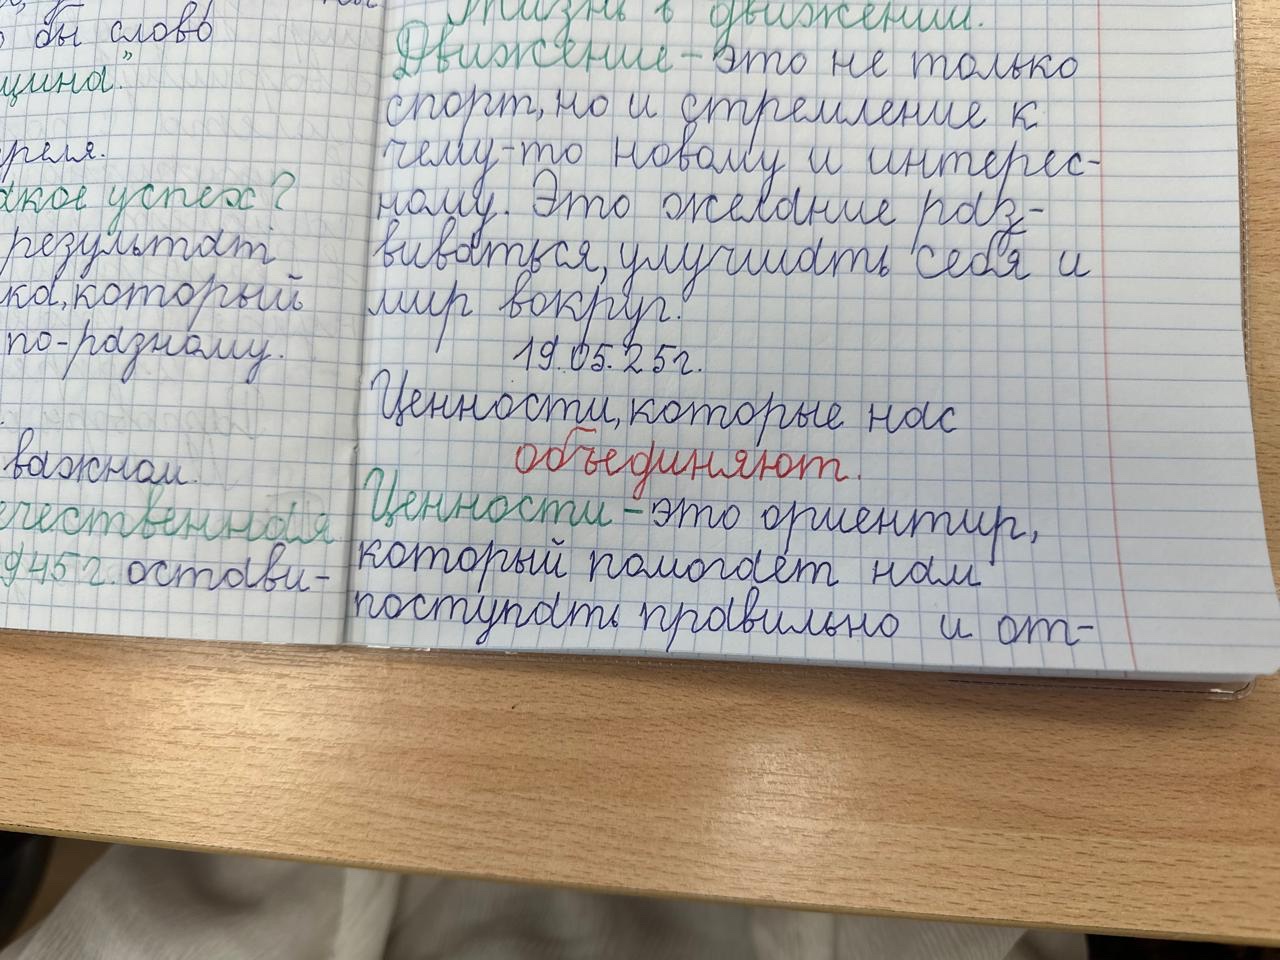 бы слово
щина."
реля.
акое успех?
результат
ка, который
по-разному.
важном.
ечественная
945 г. остави-
Жизнь в движении.
Движение - это не только
спорт, но и стремление к
чему-то новому и интерес-
ному. Это желание раз-
виваться, улучшать себя и
мир вокруг.
19.05.25г.
Ценности, которые нас
объединяют.
Ценности - это ориентир,
который помогает нам
поступать правильно и от-